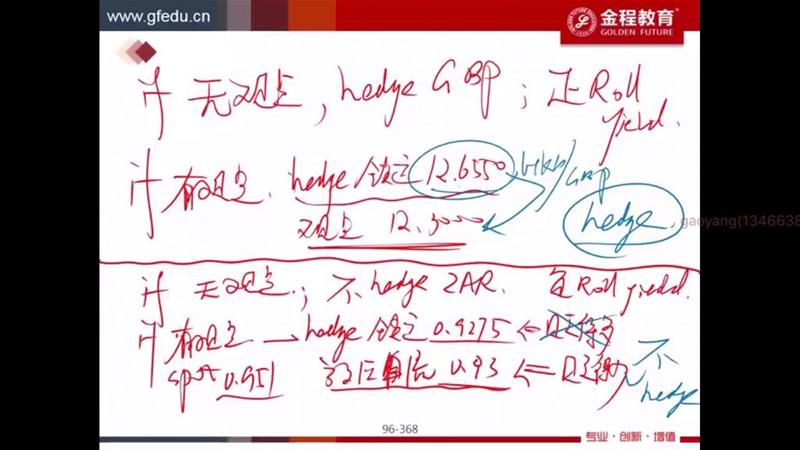 www.gfedu.cn
金程教育
GOLDEN FUTURE
if 无观点, hedge GBP; 正Roll yield.
if 有观点. hedge 锁定 12.6550 HKD/GBP
观点 12.3000 hedge
, gaoyang(1346638
if 无观点; 不hedge ZAR. 负Roll yield.
if 有观点 → hedge 锁定 0.9275
spot 0.951 0.93 不hedge
96-368
专业·创新·增值